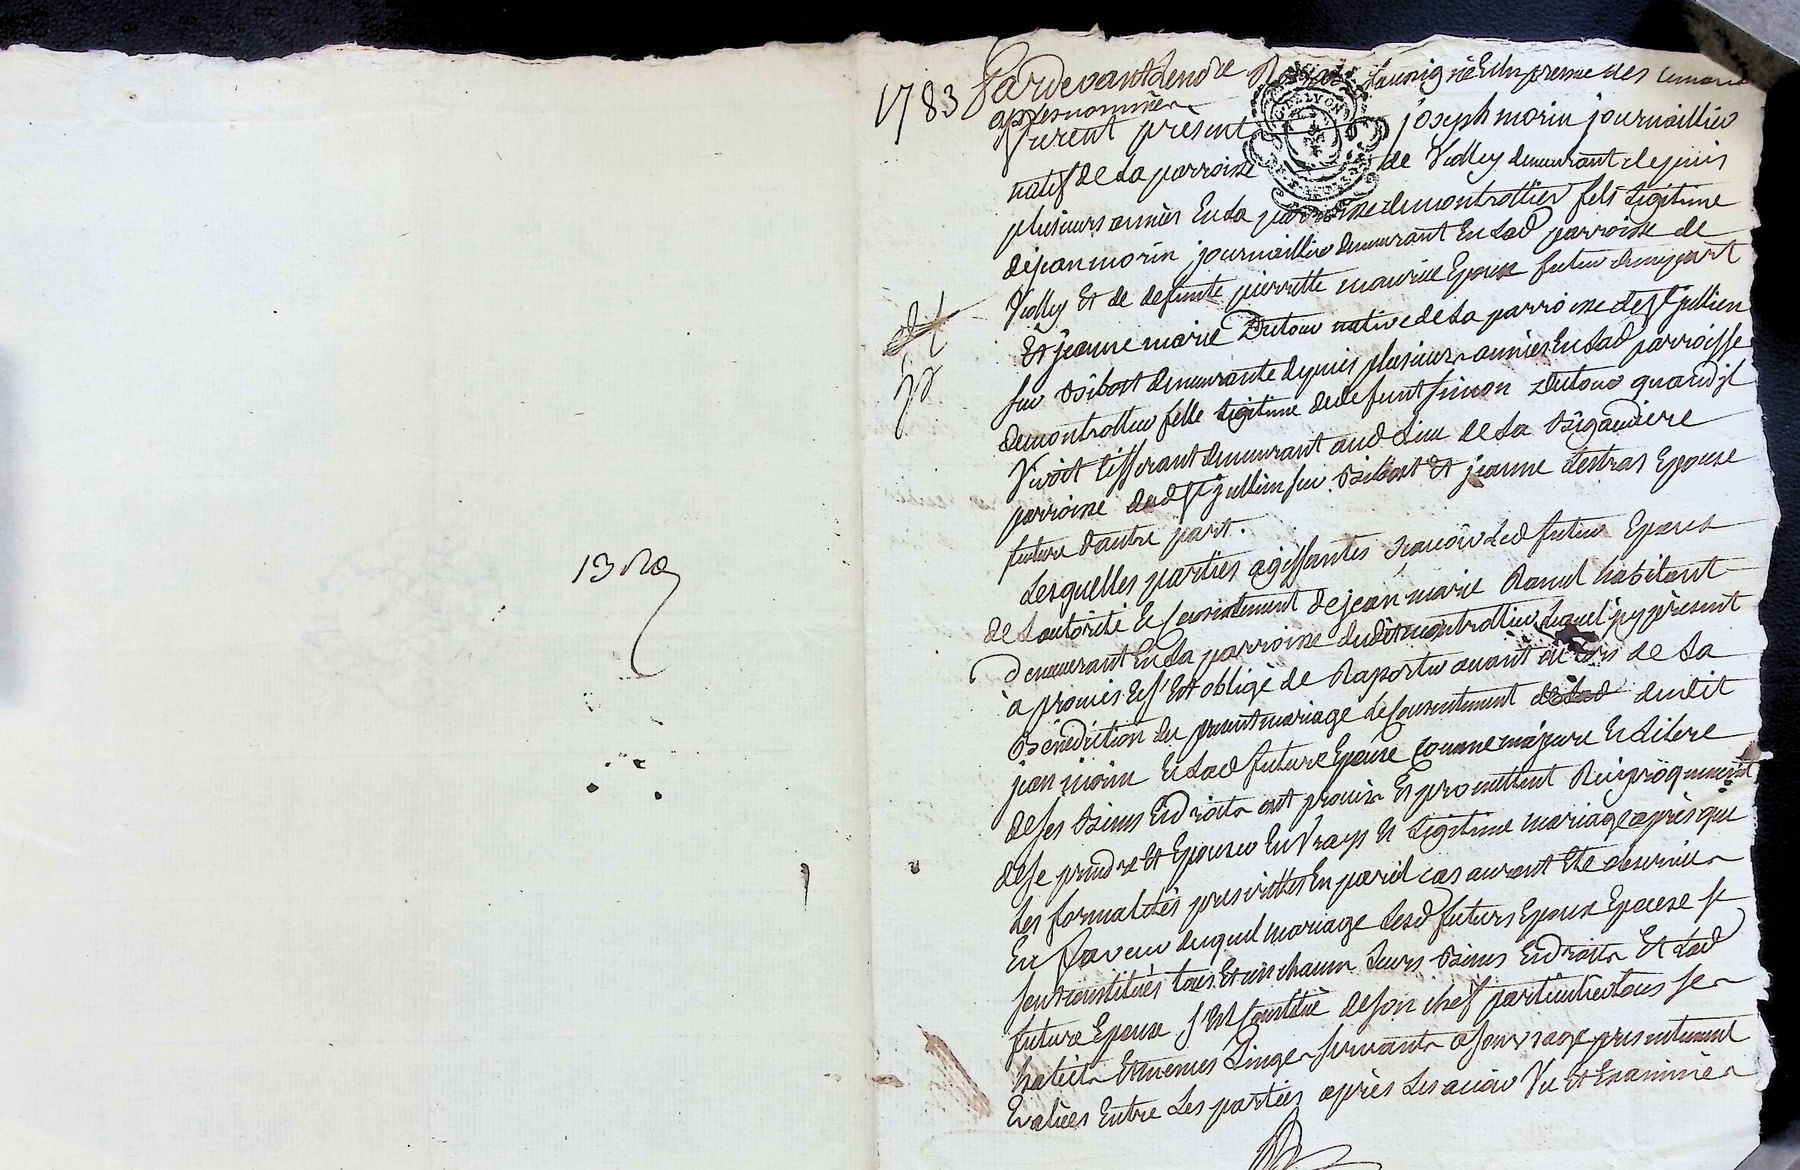 13 Rd
1783 Pardevant Lenore Royal Soussigné Et En presence des temoins
apres nommés
furent présents joseph morin journaillier
natif de La parroisse de Violley demeurant depuis
plusieurs années En La parroisse de montrottier fils Legitime
de jean morin journaillier demeurant En Lad parroisse de
Viollay Et de defunte pierrette maurice Epoux futur d'une part
Et jeanne marie Dutour native de La parroisse de St jullien
sur Bibost demeurante depuis plusieurs années En Lad parroisse
de montrottier fille Legitime de defunt simon Dutour quand il
Vivoit tisserant demeurant aud Lieu de La Bigaudiere
parroisse dud St jullien sur Bibost Et jeanne Lestras Epouse
future d'autre part.
Lesquelles parties agissantes sçavoir Led futur Epoux
de Lautorité Et Consentement de jean marie Ramel habitant
demeurant En La parroisse dudit montrottier Lequel jcy présent
à promis Et s'Est obligé de Raporter avant ou Lors de La
Bénédiction du present mariage Le Consentement de Lad dudit
jean morin Et Lad future Epouse Comme majeure Et Libre
de ses Biens Et droits ont promis Et promettent Réciproquement
de se prendre Et Epouser En Vrays Et Legitime mariage après que
Les formalités prescrittes En pareil cas auront Eté observées
En faveur duquel mariage Lesd futurs Epoux Epouse se
sont constitués tous Et un chacun Leurs Biens Et droits Et Lad
future Epouse s'Est Constitué de son chef particulier tous ses
habits Et menus Linges servants a son usage presentement
Evalués Entre Les parties après Les avoir Vu Et Examinés